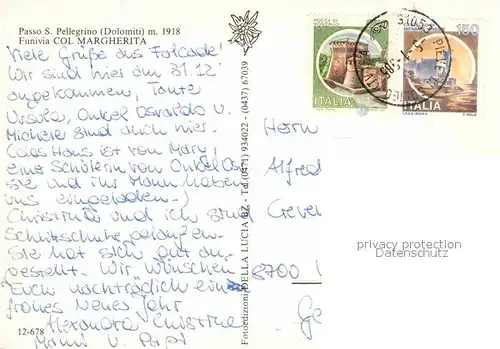 Passo S. Pellegrino (Dolomiti) m. 1918
Funivia COL MARGHERITA
Viele Grüße aus Falcade!
Wir sind hier am 31.12
angekommen, Tante
Ursula, Onkel Osvaldo u.
Michele sind auch hier.
(das Haus ist von Mary,
eine Schülerin von Onkel Os
sie und ihr Mann haben
uns eingeladen.)
Christine und ich sind
Schlittschuhe gelaufen.
Sie hat sich gut an-
gestellt. Wir wünschen
Euch nachträglich ein
frohes Neues Jahr
Alexandra Christine
Mami u. Papi
12-678
Fotoedizioni DELLA LUCIA BZ - Tel. (0471) 934022 - (0437) 67039
ITALIA
150
ITALIA
Herrn
Alfred
8700
privacy protection
Datenschutz